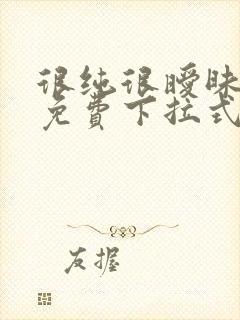 很纯很暧昧
免費下拉式
友握